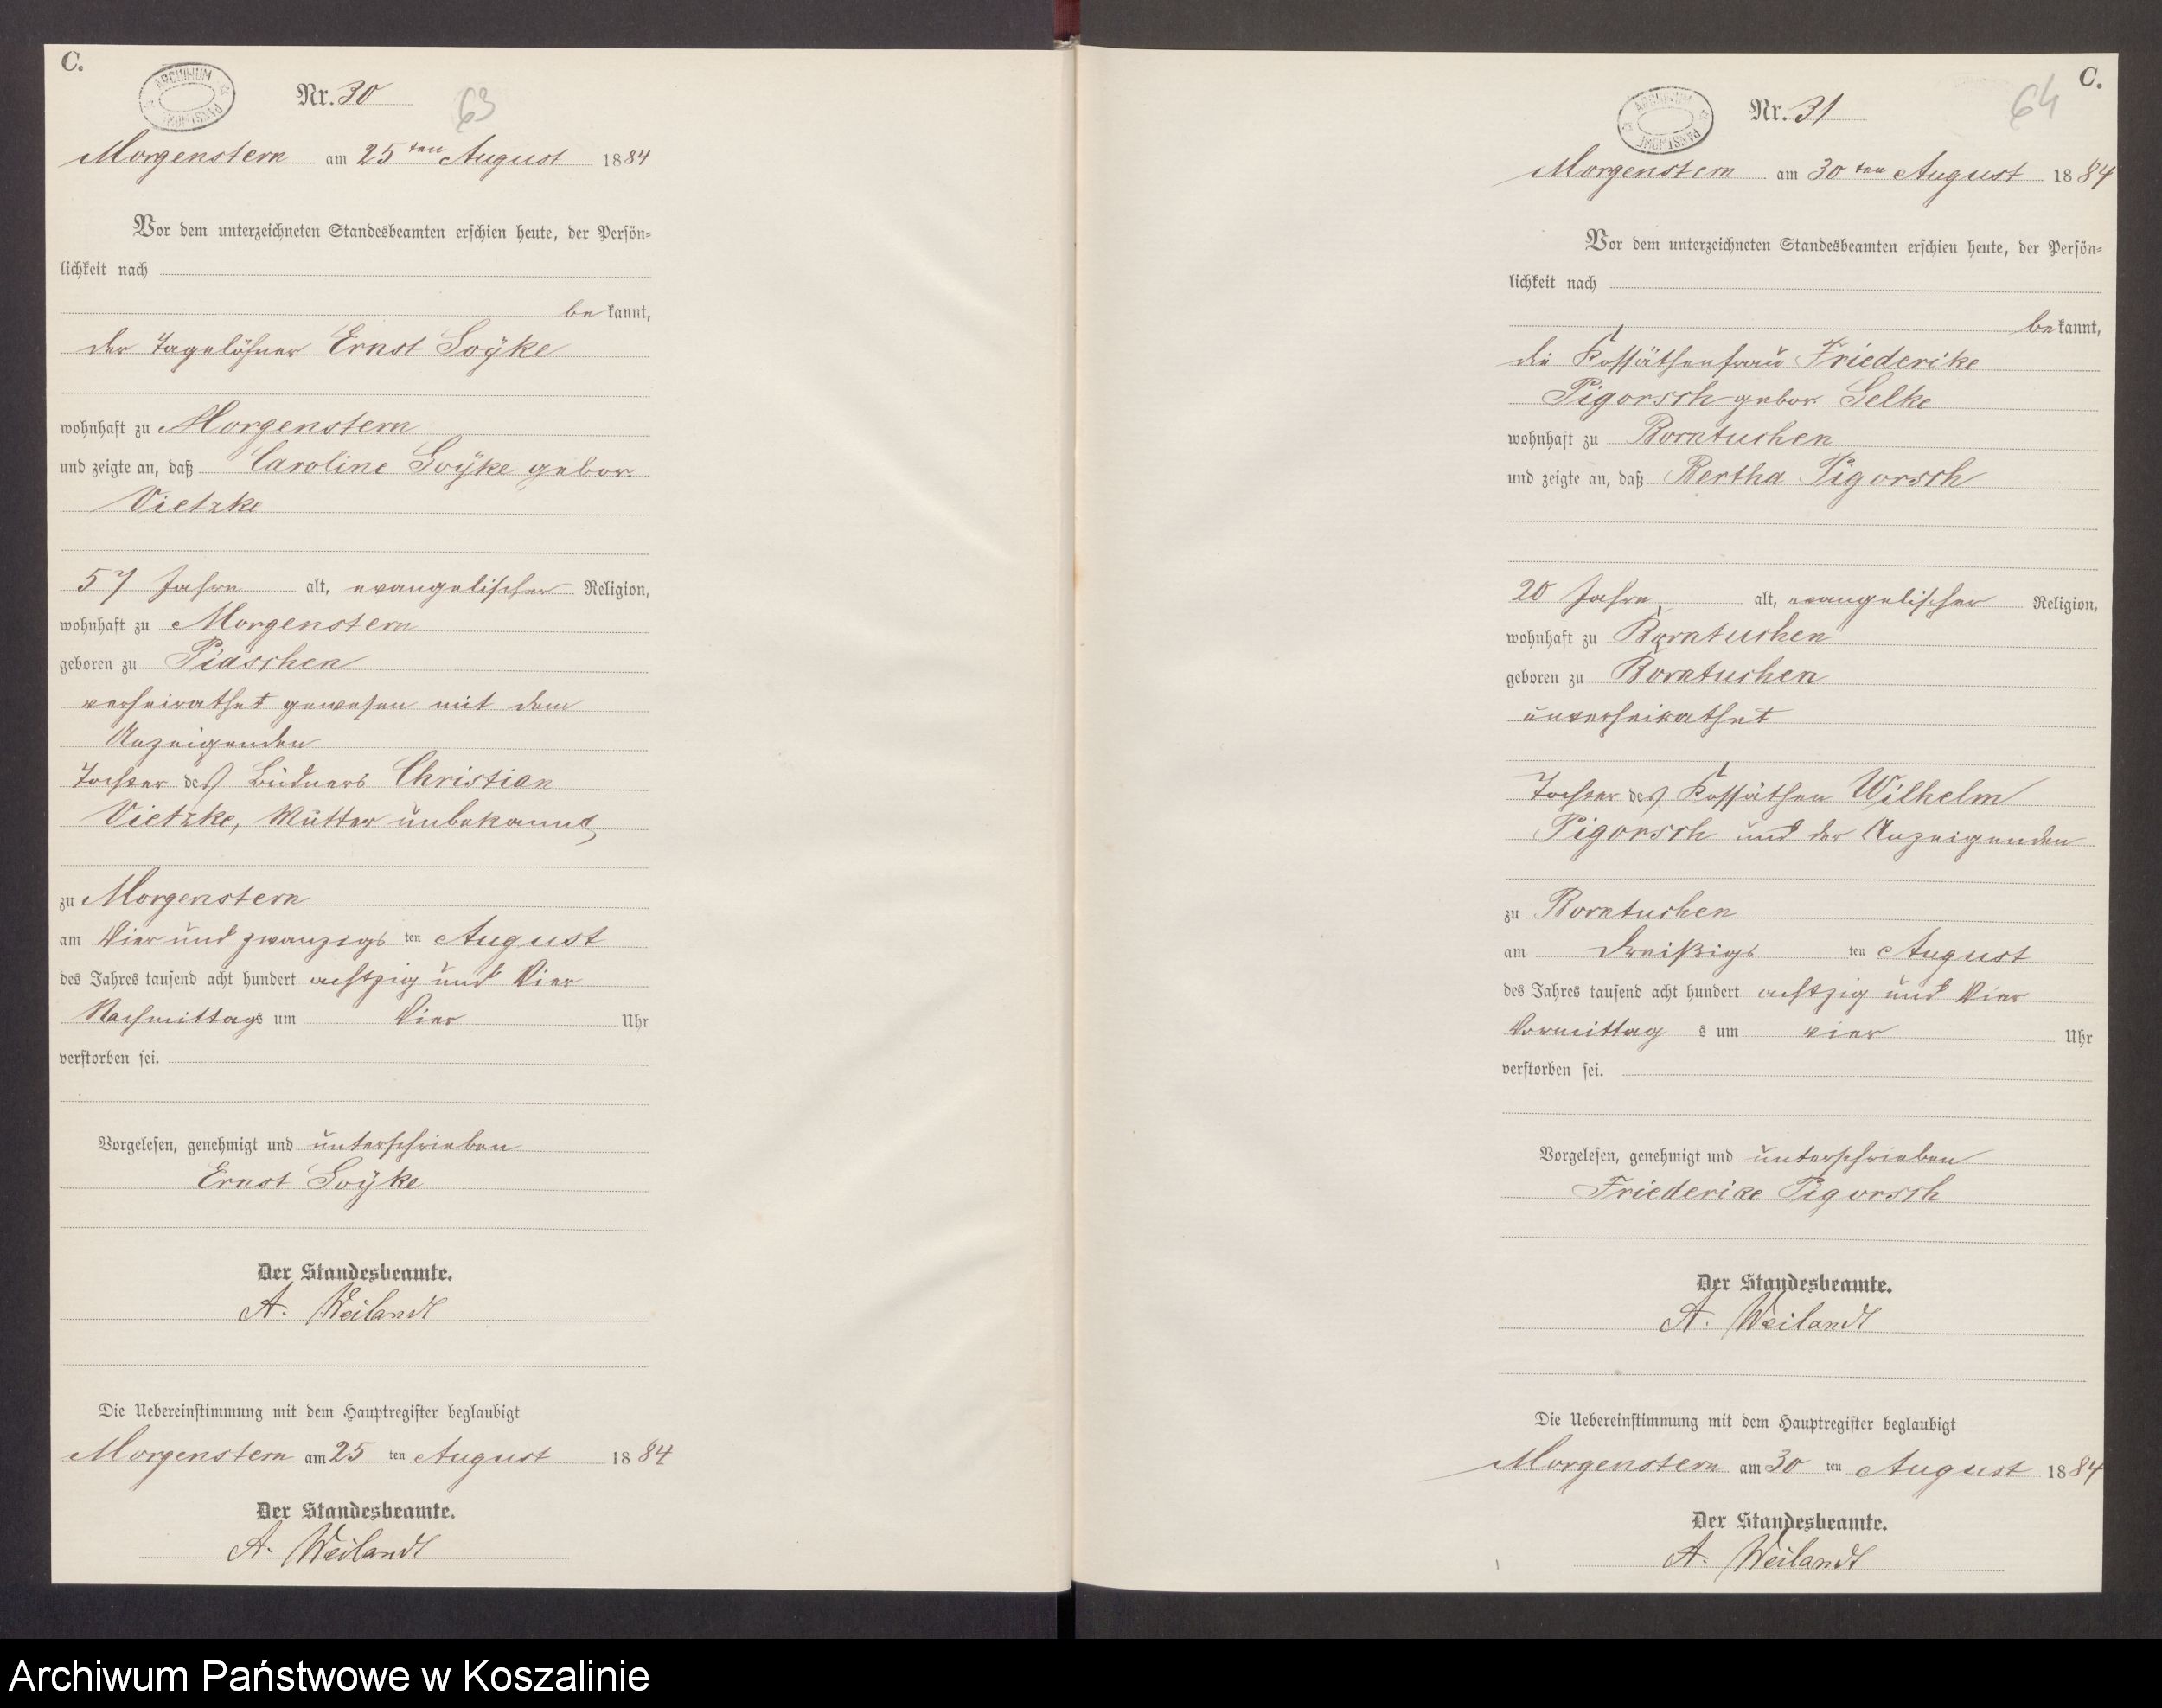 C.
ARCHIWUM PAŃSTWOWE
Nr. 30
63
Morgenstern am 25ten August 1884
Vor dem unterzeichneten Standesbeamten erschien heute, der Persön=
lichkeit nach
bekannt,
der Tagelöhner Ernst Goÿke
wohnhaft zu Morgenstern
und zeigte an, daß Caroline Goÿke gebor.
Vietzke
57 Jahre alt, evangelischer Religion,
wohnhaft zu Morgenstern
geboren zu Piaschen
verheirathet gewesen mit dem
Anzeigenden
Tochter des Büdners Christian
Vietzke, Mutter unbekannt,
zu Morgenstern
am Vier und zwanzigsten August
des Jahres tausend acht hundert achtzig und Vier
Nachmittags um Vier Uhr
verstorben sei.
Vorgelesen, genehmigt und unterschrieben
Ernst Goÿke
Der Standesbeamte.
A. Weilandt
Die Uebereinstimmung mit dem Hauptregister beglaubigt
Morgenstern am 25 ten August 1884
Der Standesbeamte.
A. Weilandt
C.
ARCHIWUM PAŃSTWOWE
Nr. 31
64
Morgenstern am 30ten August 1884
Vor dem unterzeichneten Standesbeamten erschien heute, der Persön=
lichkeit nach
bekannt,
die Kossäthenfrau Friederike
Pigorsch gebor. Selke
wohnhaft zu Borntuchen
und zeigte an, daß Bertha Pigorsch
20 Jahre alt, evangelischer Religion,
wohnhaft zu Borntuchen
geboren zu Borntuchen
unverheirathet
Tochter des Kossäthen Wilhelm
Pigorsch und der Anzeigenden
zu Borntuchen
am Dreißigsten August
des Jahres tausend acht hundert achtzig und Vier
Vormittag s um vier Uhr
verstorben sei.
Vorgelesen, genehmigt und unterschrieben
Friederike Pigorsch
Der Standesbeamte.
A. Weilandt
Die Uebereinstimmung mit dem Hauptregister beglaubigt
Morgenstern am 30 ten August 1884
Der Standesbeamte.
A. Weilandt
Archiwum Państwowe w Koszalinie